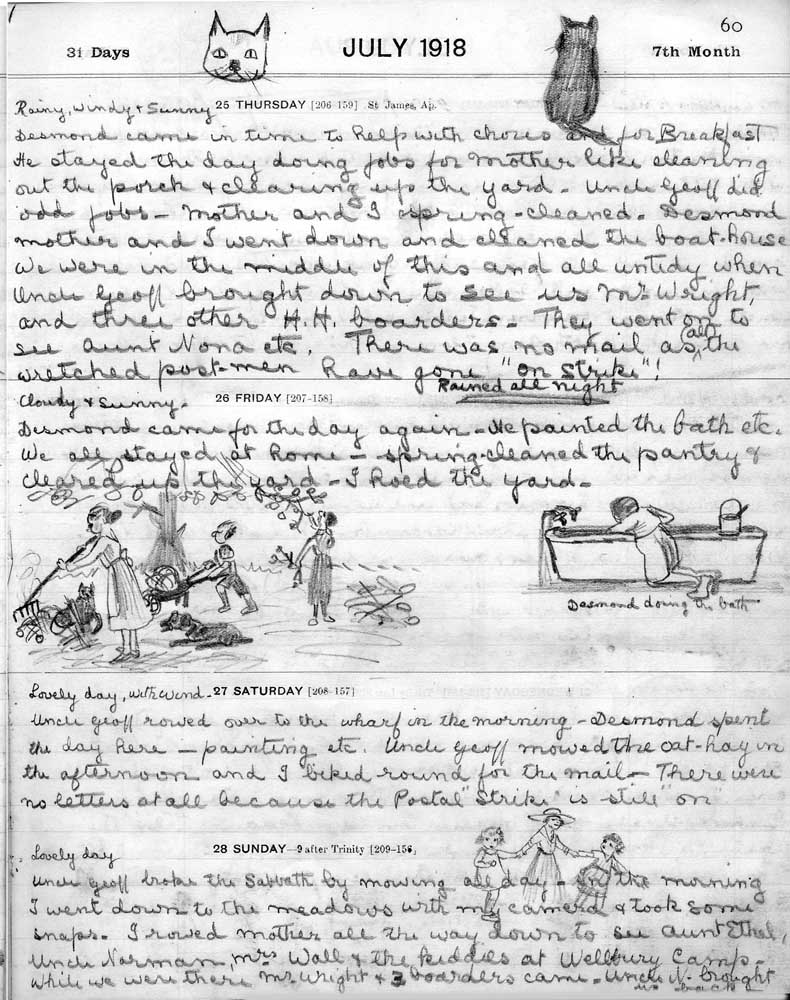 60
31 Days JULY 1918 7th Month
Rainy, Windy & Sunny 25 THURSDAY [206-159] St James, Ap.
Desmond came in time to help with chores and for Breakfast.
He stayed the day doing jobs for Mother like cleaning
out the porch & clearing up the yard - Uncle Geoff did
odd jobs - Mother and I spring-cleaned. Desmond
mother and I went down and cleaned the boat-house
We were in the middle of this and all untidy when
Uncle Geoff brought down to see us Mrs Wright,
and three other H.H. boarders. They went on to
see aunt Nona etc. There was no mail as all the
wretched post-men have gone "on Strike"!
Rained all night
Cloudy & Sunny. 26 FRIDAY [207-158]
Desmond came for the day again - He painted the bath etc.
We all stayed at home - spring-cleaned the pantry &
cleared up the yard - I hoed the yard -
Desmond doing the bath
Lovely day, with wind - 27 SATURDAY [208-157]
Uncle Geoff rowed over to the wharf in the morning - Desmond spent
the day here - painting etc. Uncle Geoff mowed the oat-hay in
the afternoon and I biked round for the mail - There were
no letters at all because the Postal "Strike" is still "on"
Lovely day 28 SUNDAY—9 after Trinity [209-156]
Uncle Geoff broke the Sabbath by mowing all day - In the morning
I went down to the meadows with my camera & took some
snaps. I rowed mother all the way down to see aunt Ethel,
Uncle Norman, Mrs Wall & the kiddies at Wellbury Camp -
While we were there Mrs Wright & 3 boarders came. Uncle N. brought
us back